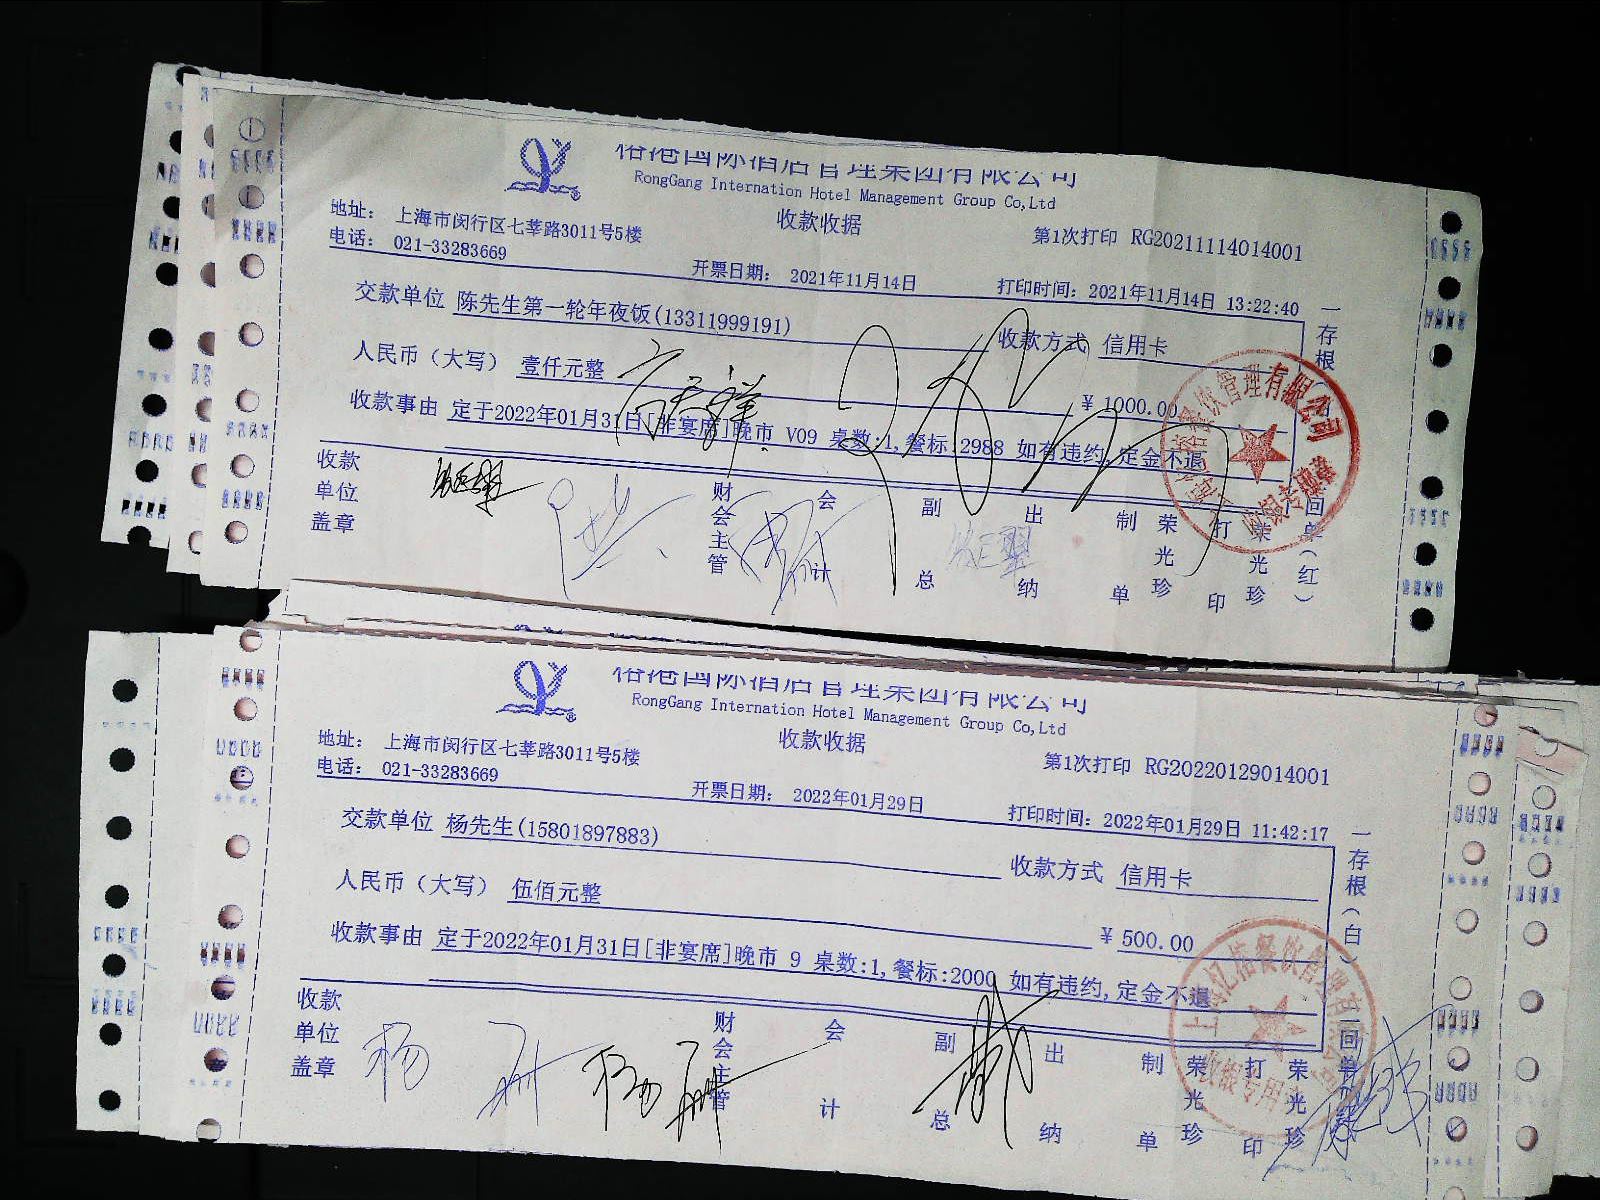 国际酒店管理集团有限公司
RongGang Internation Hotel Management Group Co,Ltd
地址： 上海市闵行区七莘路3011号5楼
收款收据
第1次打印 RG20211114014001
电话： 021-33283669
开票日期： 2021年11月14日
打印时间：2021年11月14日 13:22:40
交款单位 陈先生第一轮年夜饭(13311999191)
收款方式 信用卡
人民币（大写） 壹仟元整
¥ 1000.00
收款事由 定于2022年01月31日[非宴席]晚市 V09 桌数:1,餐标:2988 如有违约,定金不退
收款单位盖章
财会主管
会计
副总
出纳
制单
荣光珍
打印
荣光珍
一存根
回单（红）
国际酒店管理集团有限公司
RongGang Internation Hotel Management Group Co,Ltd
地址： 上海市闵行区七莘路3011号5楼
收款收据
第1次打印 RG20220129014001
电话： 021-33283669
开票日期： 2022年01月29日
打印时间：2022年01月29日 11:42:17
交款单位 杨先生(15801897883)
收款方式 信用卡
人民币（大写） 伍佰元整
¥ 500.00
收款事由 定于2022年01月31日[非宴席]晚市 9 桌数:1,餐标:2000 如有违约,定金不退
收款单位盖章
财会主管
会计
副总
出纳
制单
荣光珍
打印
荣光珍
一存根（白）
回单